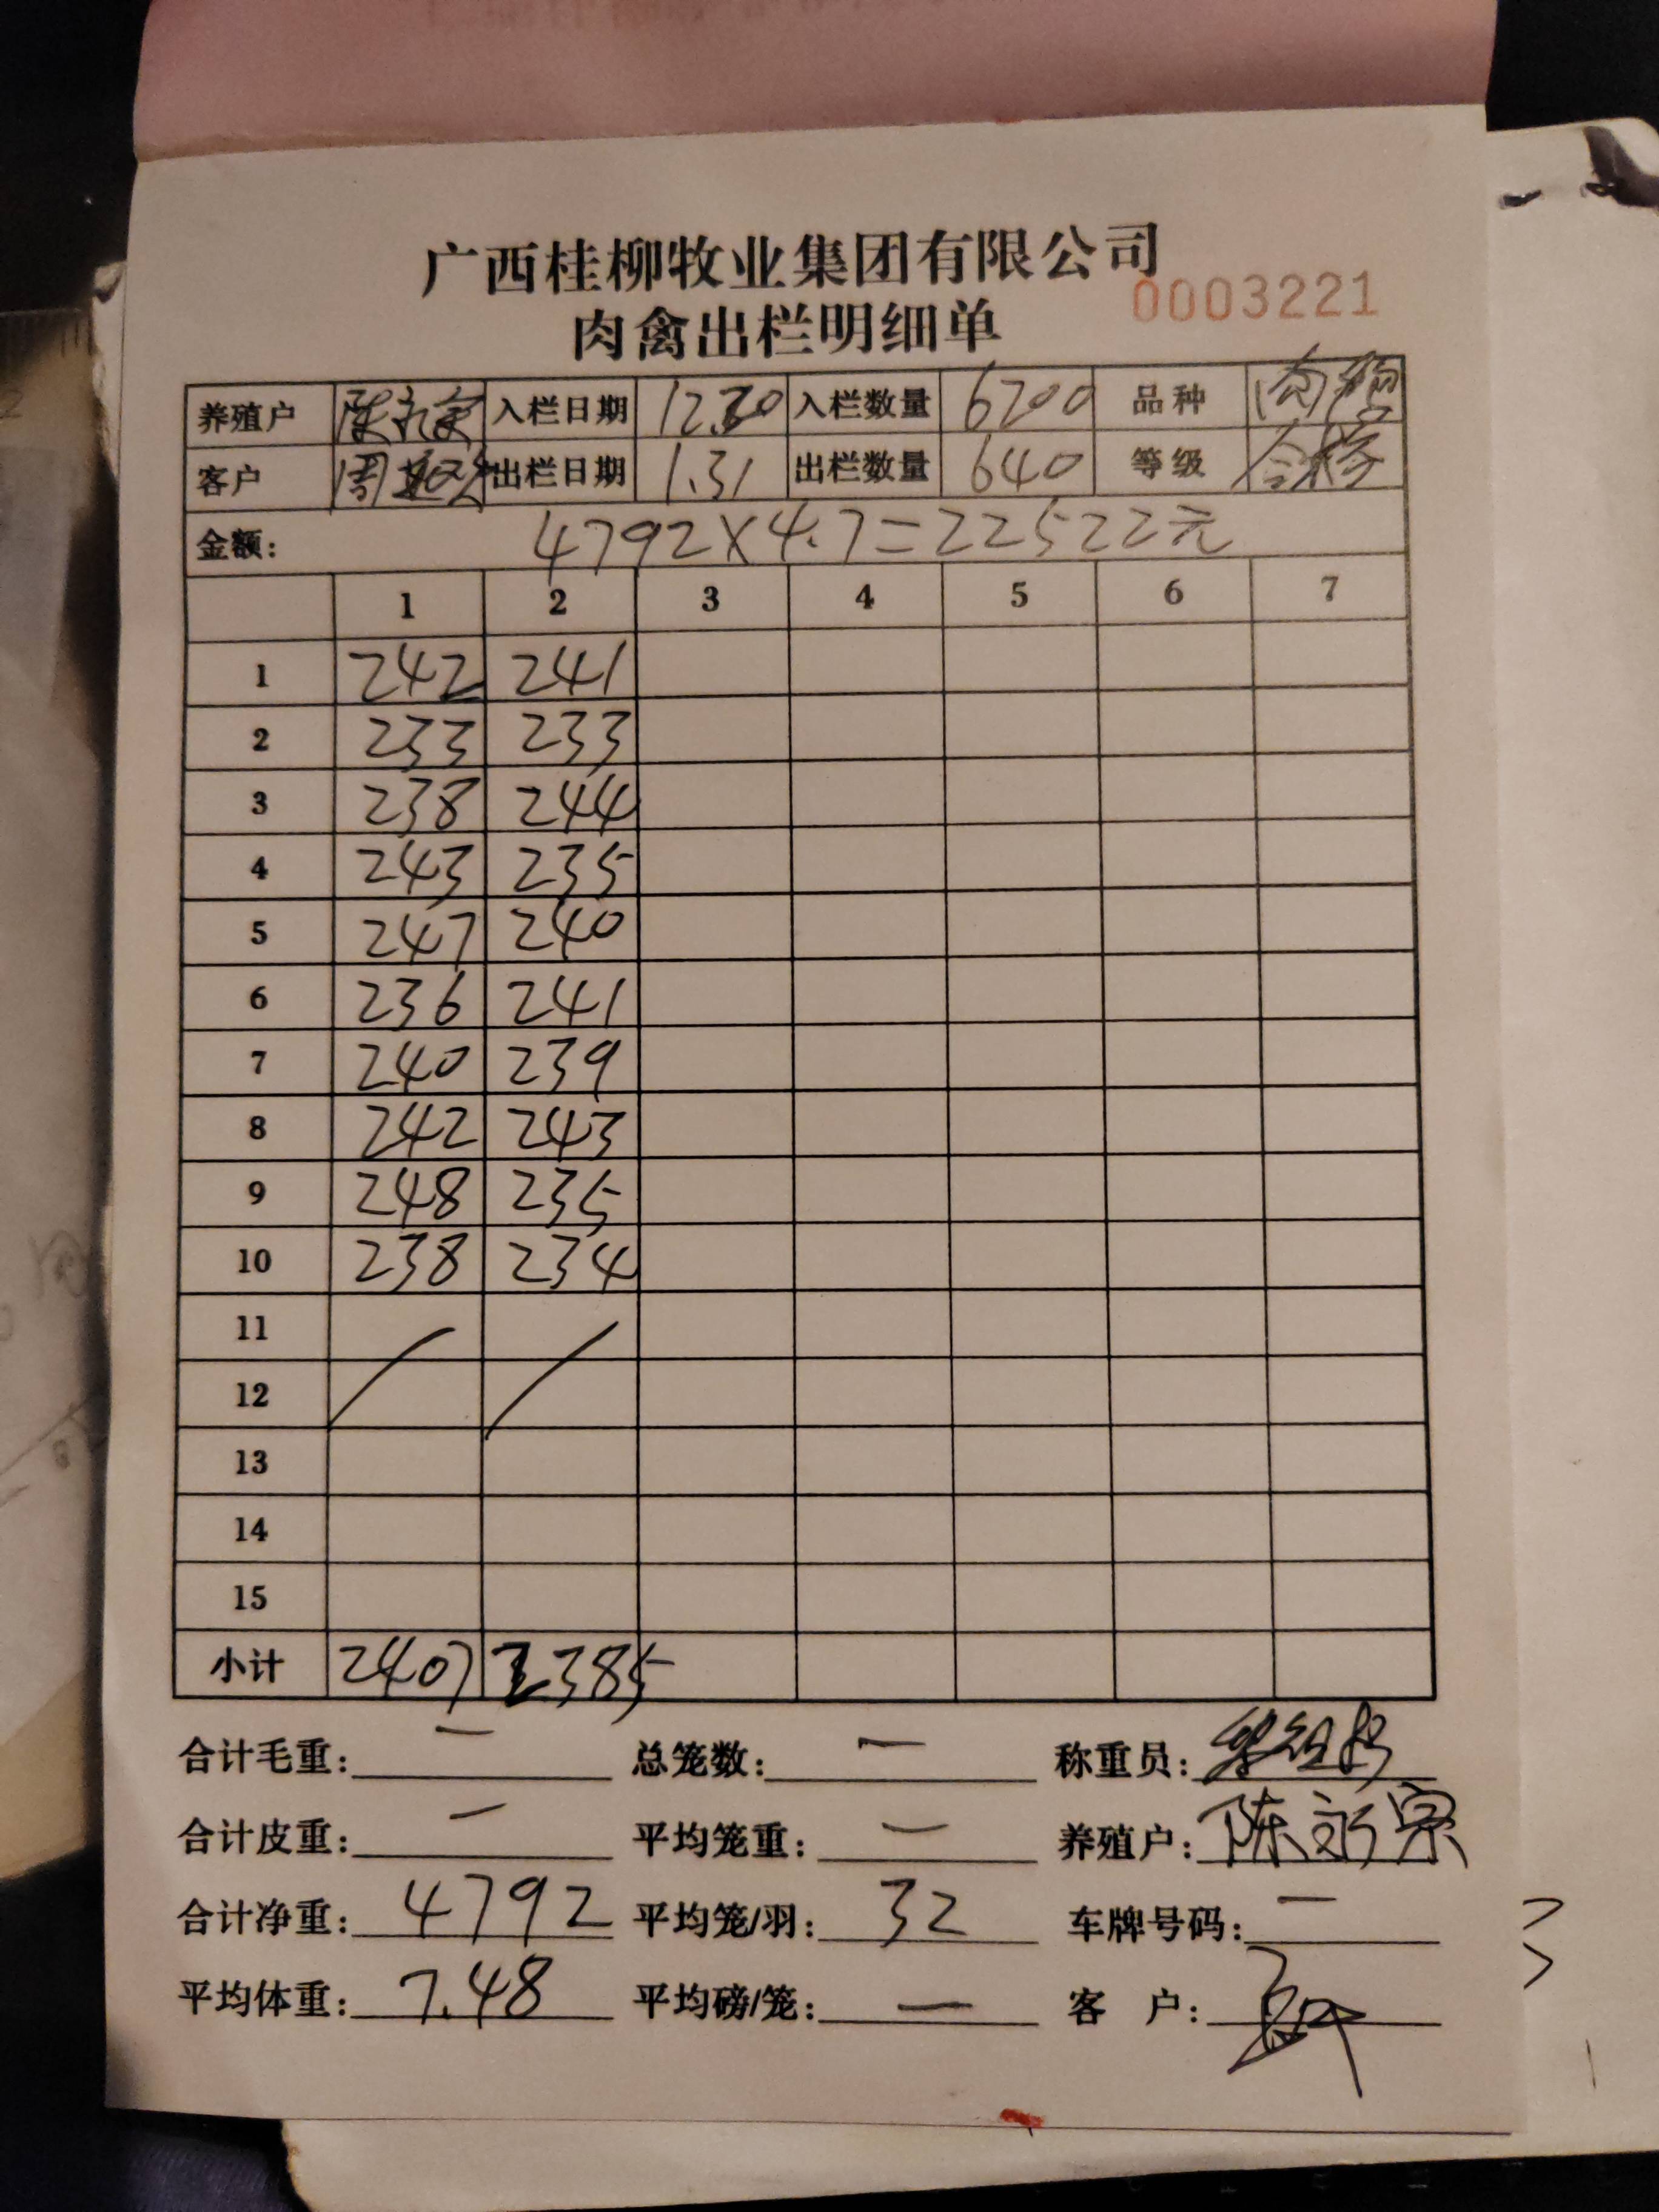 广西桂柳牧业集团有限公司
0003221
肉禽出栏明细单
养殖户 陈永宗 入栏日期 12.30 入栏数量 6200 品种 肉鸭
客户 周 出栏日期 1.31 出栏数量 640 等级 合格
金额: 4792×4.7=22522元
1 2 3 4 5 6 7
1 242 241
2 233 233
3 238 244
4 243 235
5 247 240
6 236 241
7 240 239
8 242 243
9 248 235
10 238 234
11
12
13
14
15
小计 2407 2385
合计毛重: — 总笼数: — 称重员:
合计皮重: — 平均笼重: — 养殖户: 陈永宗
合计净重: 4792 平均笼/羽: 32 车牌号码: —
平均体重: 7.48 平均磅/笼: — 客 户: